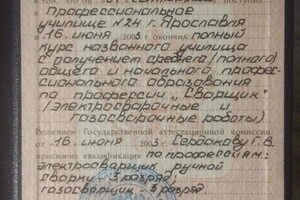 в том, что он
Профессиональное
училище №24 г. Ярославля
и 16 июня 2003 г. окончил полный
курс названного училища
с получением среднего (полного)
общего и начального профес-
сионального образования
по профессии „Сварщик"
(электросварочные и
газосварочные работы)
Решением Государственной аттестационной комиссии
от 16 июня 2003 г. Сердакову Г. В.
присвоена квалификация по профессиям:
электросварщик ручной
сварки 3 разряд;
газосварщик - 3 разряд.